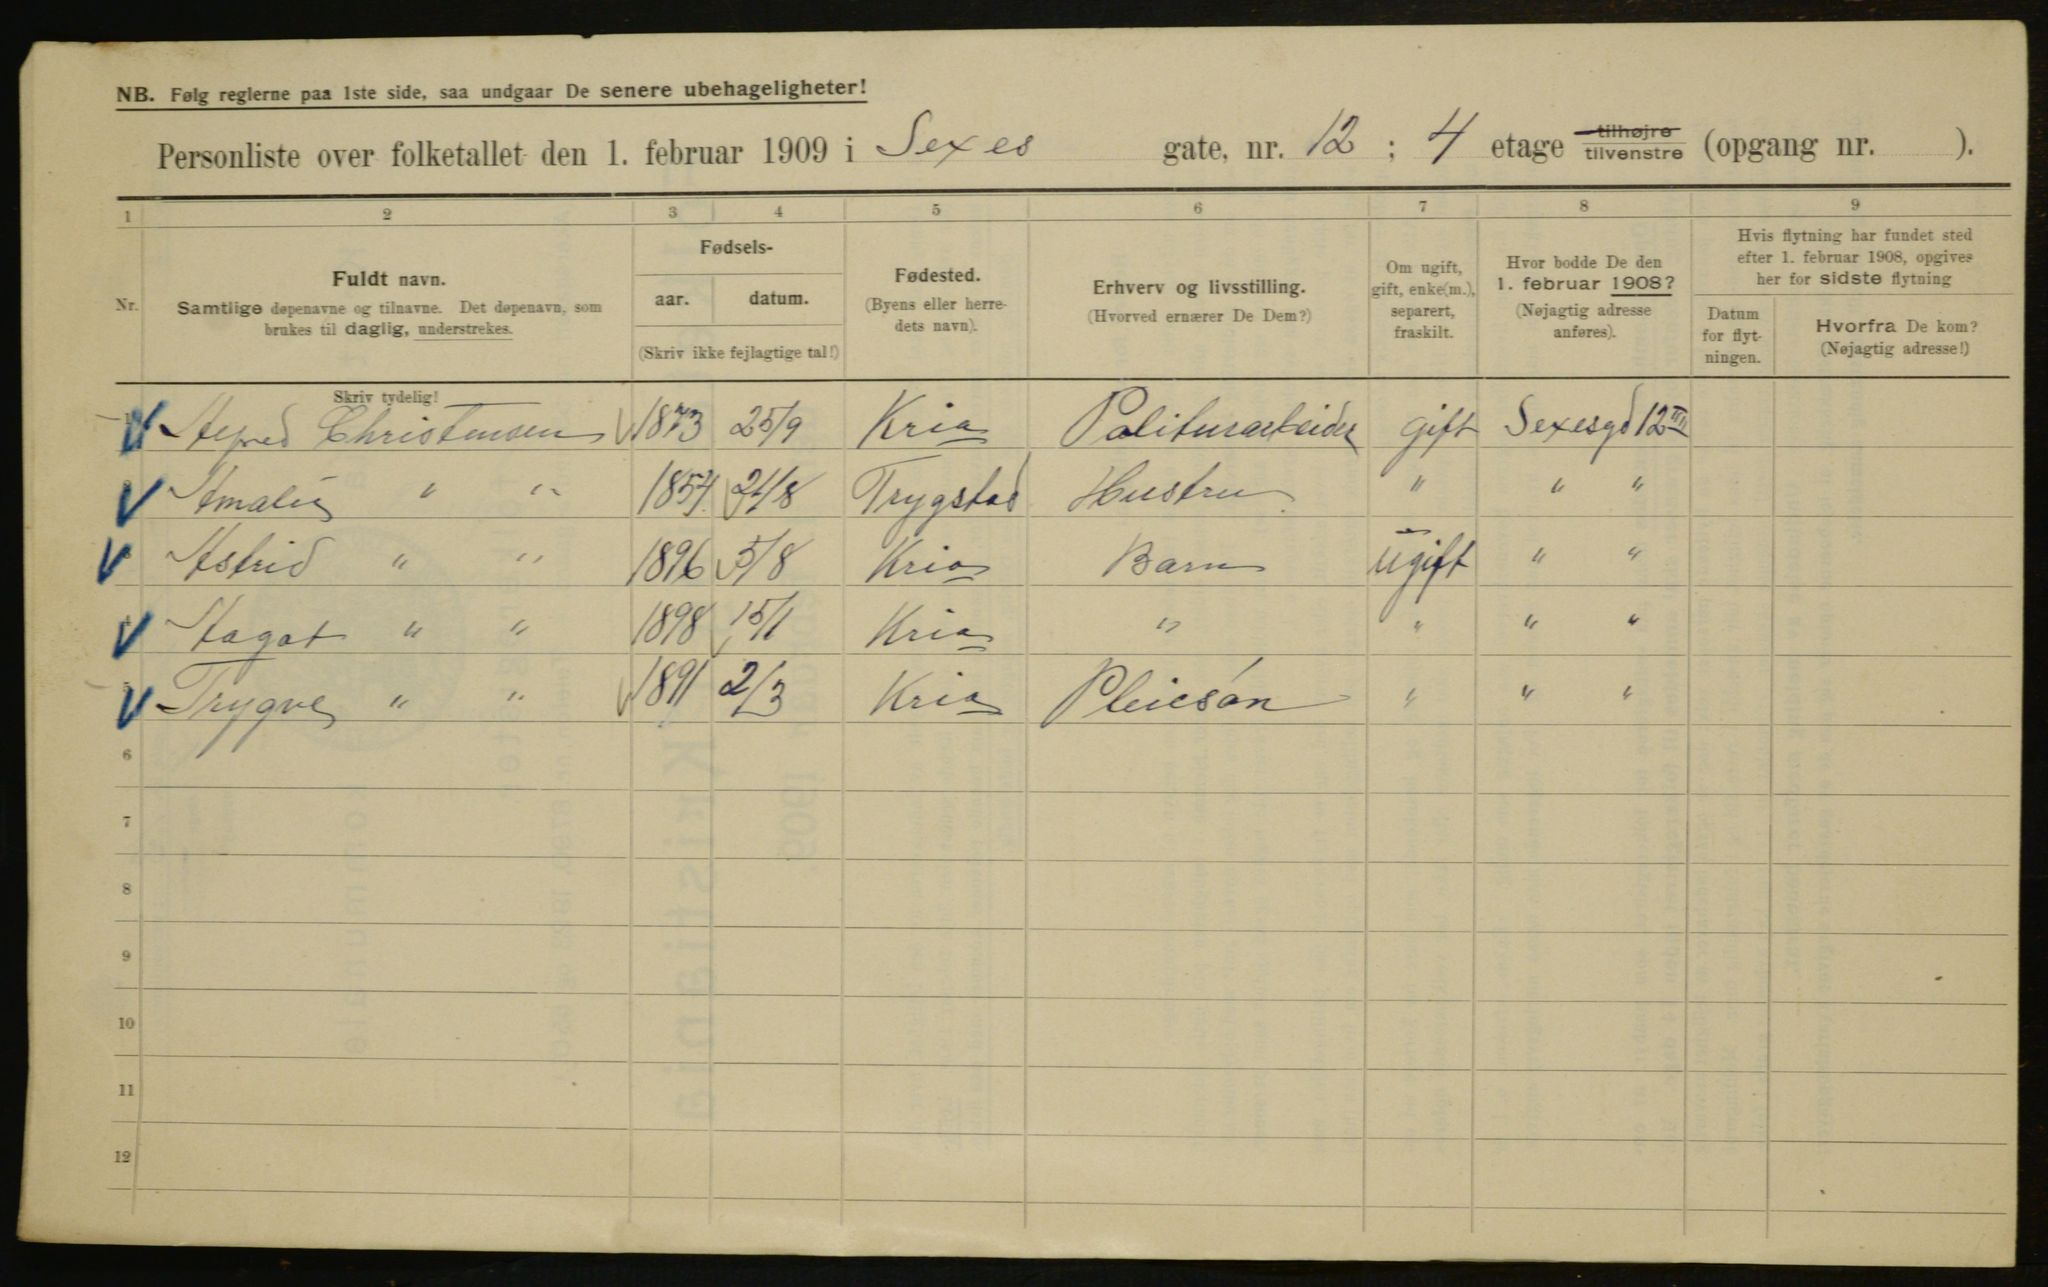 NB. Følg reglerne paa 1ste side, saa undgaar De senere ubehageligheter!
Personliste over folketallet den 1. februar 1909 i Sexes gate, nr. 12 ; 4 etage tilhøjre tilvenstre (opgang nr. ).
1 2 3 4 5 6 7 8 9
Nr.
Fuldt navn.
Samtlige døpenavne og tilnavne. Det døpenavn, som
brukes til daglig, understrekes.
Fødsels-
aar. datum.
(Skriv ikke fejlagtige tal!)
Fødested.
(Byens eller herre-
dets navn).
Erhverv og livsstilling.
(Hvorved ernærer De Dem?)
Om ugift,
gift, enke(m.),
separert,
fraskilt.
Hvor bodde De den
1. februar 1908?
(Nøjagtig adresse
anføres).
Hvis flytning har fundet sted
efter 1. februar 1908, opgives
her for sidste flytning
Datum
for flyt-
ningen.
Hvorfra De kom?
(Nøjagtig adresse!)
Skriv tydelig!
1 Alfred Christensen 1873 25/9 Kria Politurarbeider gift Sexesgd 12 III
2 Amalie " " 1857 21/8 Trygstad Hustru " " "
3 Astrid " " 1896 5/8 Kria Barn ugift " "
4 Aagot " " 1898 15/1 Kria " " " "
5 Trygve " " 1891 2/3 Kria Pleiesøn " " "
6
7
8
9
10
11
12